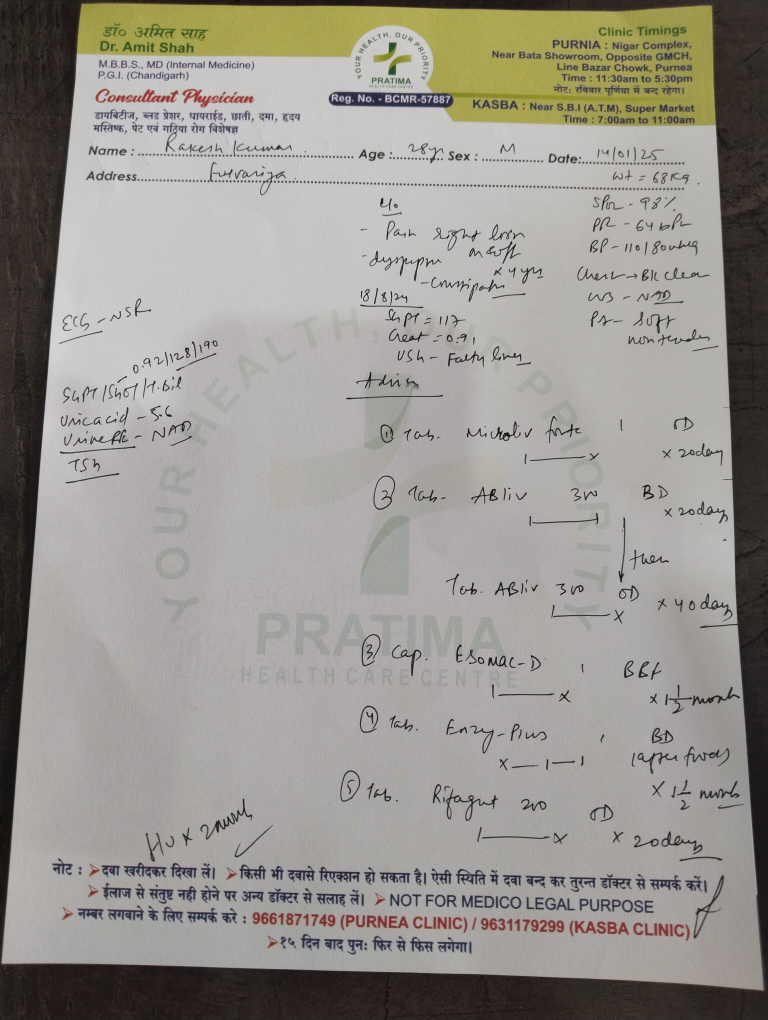 डॉ० अमित साह
Dr. Amit Shah
M.B.B.S., MD (Internal Medicine)
P.G.I. (Chandigarh)
Consultant Physician
डायबिटीज, ब्लड प्रेशर, थायराईड, छाती, दमा, हृदय
मस्तिष्क, पेट एवं गठिया रोग विशेषज्ञ
YOUR HEALTH, OUR PRIORITY
PRATIMA
HEALTH CARE CENTRE
Reg. No. - BCMR-57887
Clinic Timings
PURNIA : Nigar Complex,
Near Bata Showroom, Opposite GMCH,
Line Bazar Chowk, Purnea
Time : 11:30am to 5:30pm
नोट: रविवार पूर्णिया में बन्द रहेगा।
KASBA : Near S.B.I (A.T.M), Super Market
Time : 7:00am to 11:00am
Name : Rakesh Kumar Age : 28yr Sex : M Date: 14/01/25
Address
Wt = 68Kg
C/o
- Pain right loin
- dyspepsia on & off
- Constipation x 4 yrs
18/8/24
SGPT = 117
Creat = 0.91
USG - Fatty liver
SPO2 - 98%
PR - 64 bpm
BP - 110/80 mmHg
Chest → B/L clear
CVS - NAD
PA - Soft
non tender
ECG - NSR
SGPT/SGOT/T.Bil - 0.92/128/190
Uric acid - 5.6
Urine RE - NAD
TSH
Advise
① Tab. Microliv forte 1 OD
1——x x 20 day
② Tab. ABliv 300 BD
1——1 x 20 days
then
Tab. ABliv 300 OD
1——x x 40 days
③ Cap. Esomac-D 1 BBF
1——x x 1 1/2 month
④ Tab. Enzy-Plus 1 BD
x—1—1 (after food)
x 1 1/2 month
⑤ Tab. Rifagut 200 OD
1——x x 20 days
YOUR HEALTH, OUR PRIORITY
PRATIMA
HEALTH CARE CENTRE
x 2 month
नोट : ➤दवा खरीदकर दिखा लें। ➤किसी भी दवासे रिएक्शन हो सकता है। ऐसी स्थिति में दवा बन्द कर तुरन्त डॉक्टर से सम्पर्क करें।
➤ईलाज से संतुष्ट नही होने पर अन्य डॉक्टर से सलाह लें। ➤NOT FOR MEDICO LEGAL PURPOSE
➤नम्बर लगवाने के लिए सम्पर्क करे : 9661871749 (PURNEA CLINIC) / 9631179299 (KASBA CLINIC)
➤१५ दिन बाद पुनः फिर से फिस लगेगा।